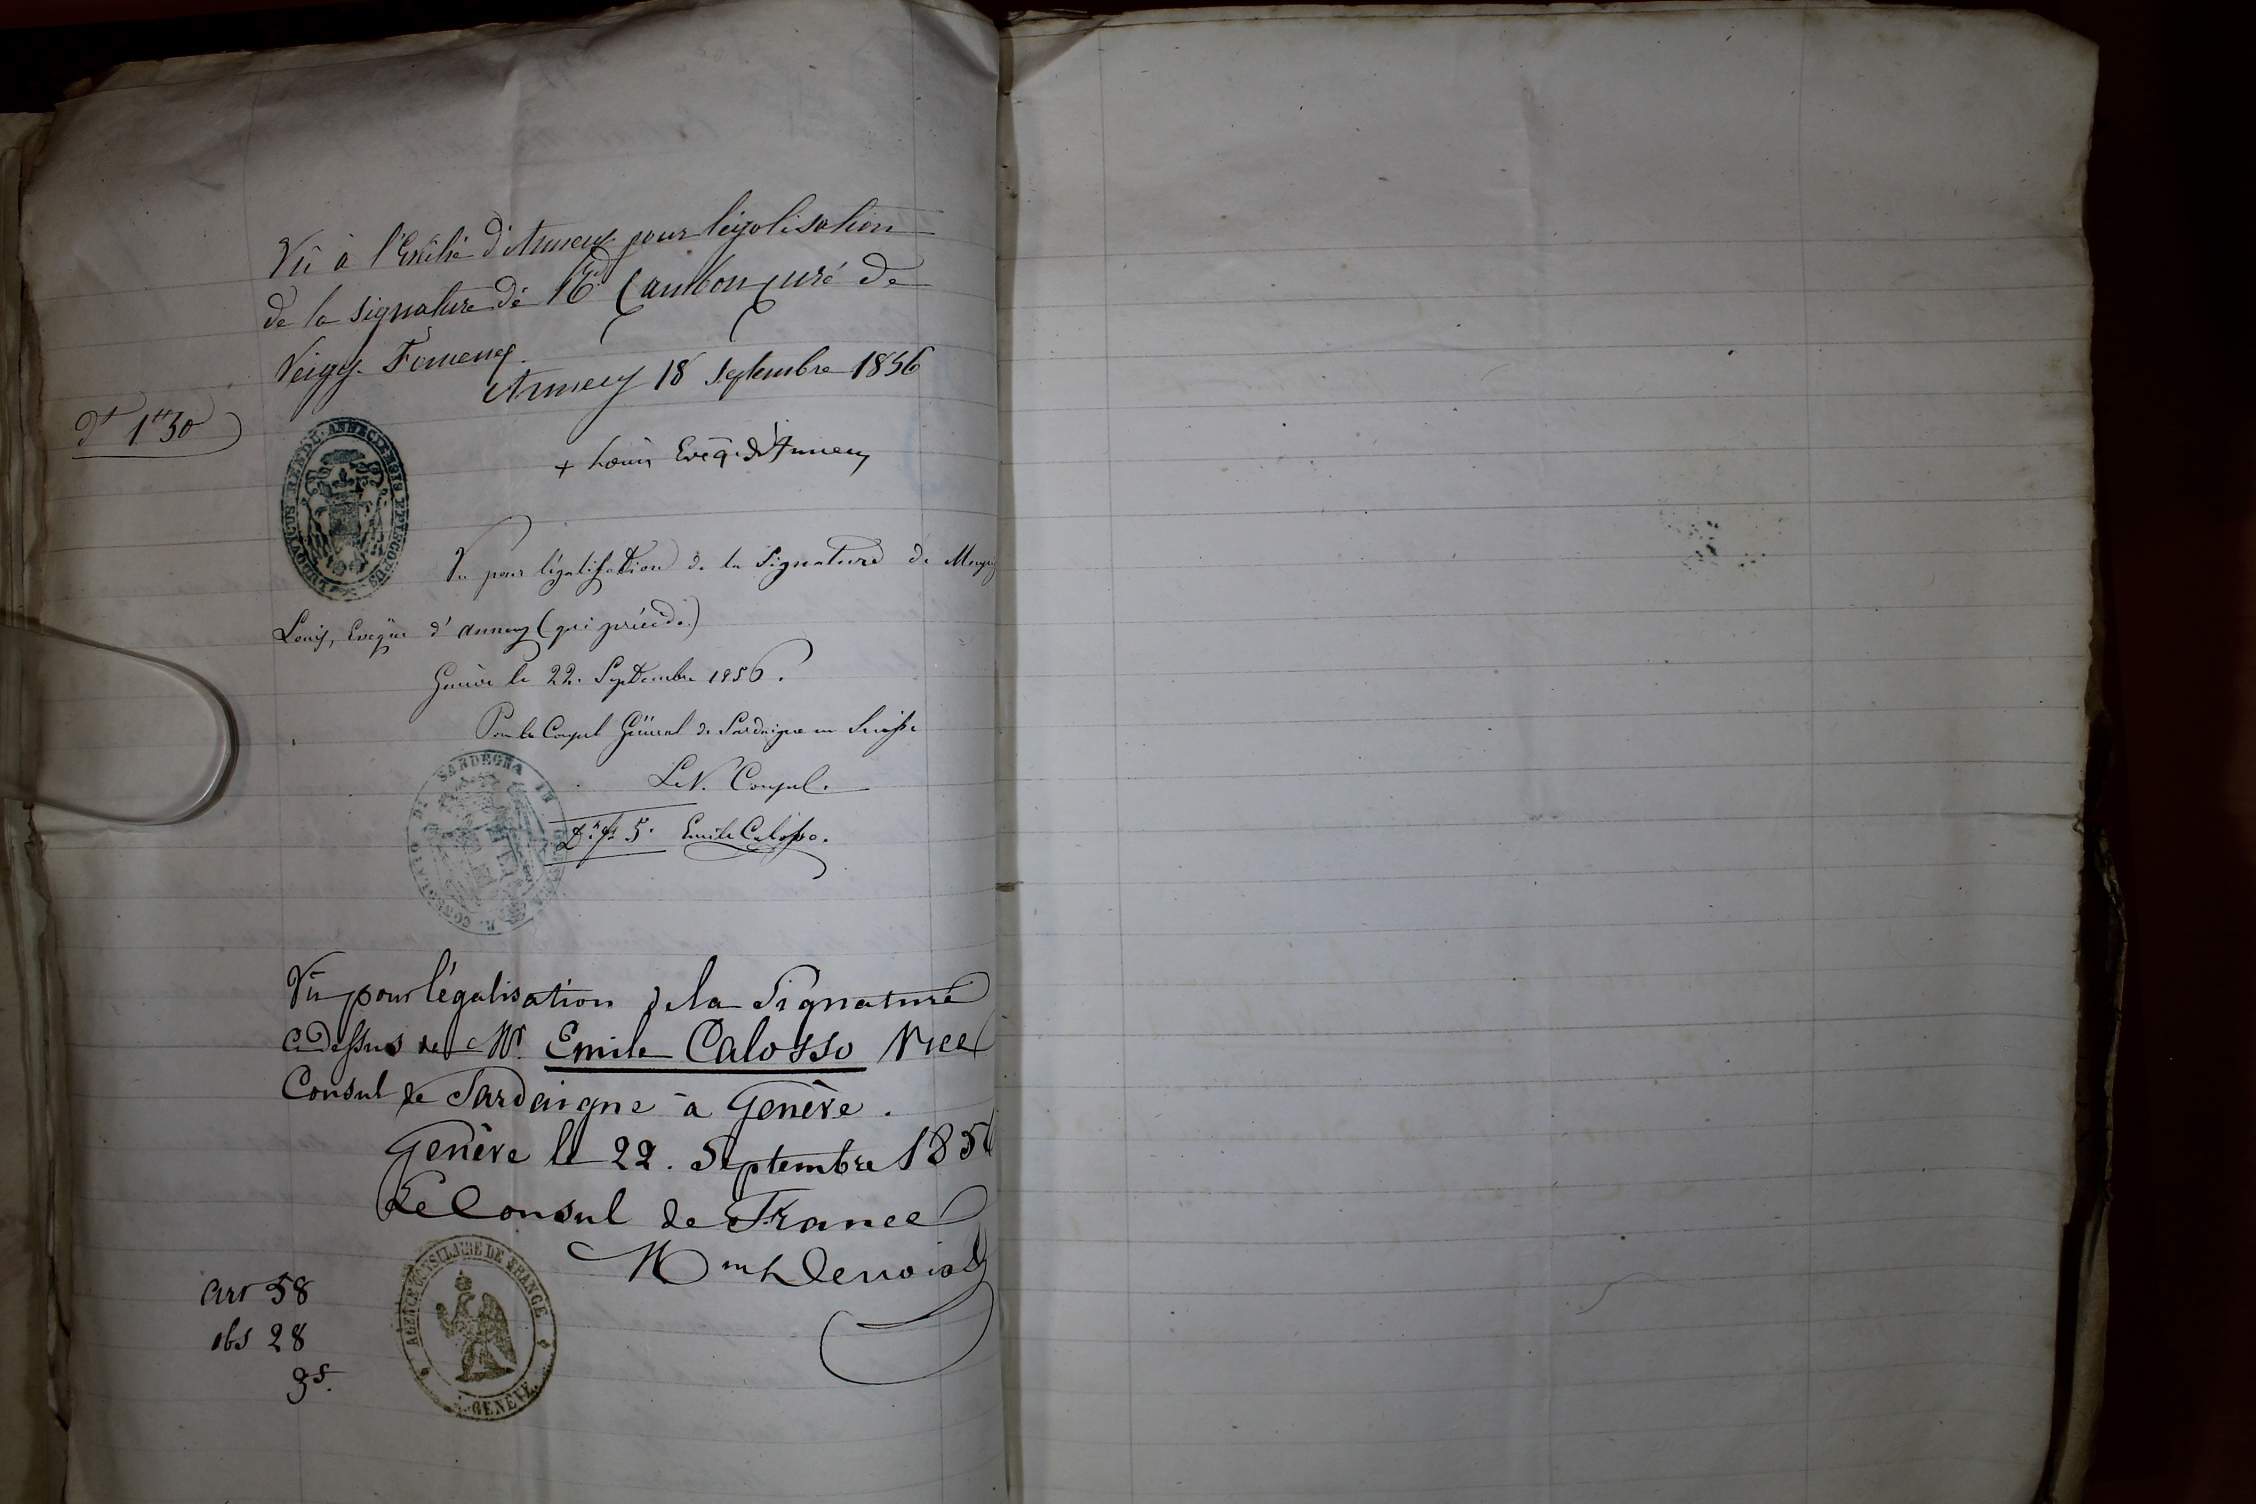 Vû à l'Evêché d'Annecy pour légalisation
de la signature de Rd curé de
Veigy-Foncenex.
Annecy 18 Septembre 1856
dt 1 50
+ Louis Evêq. d'Annecy
LUDOVICUS RENDU ANNECIENSIS EPISCOPUS
Vu pour légalisation de la Signature de Msgr
Louis, Evêque d'Annecy (qui précède.)
Genève le 22. Septembre 1856.
Pour le Consul Général de Sardaigne en Suisse
Le V. Consul.
5. Emile Calosso.
R. CONSOLATO DI SARDEGNA IN GINEVRA
Vû pour légalisation de la Signature
ci dessus de Mr. Emile Calosso Vice
Consul de Sardaigne à Genève.
Genève le 22. Septembre 1856
Le Consul de France
AGENCE CONSULAIRE DE FRANCE
A GENÈVE.
art 58
obs 28
3f.